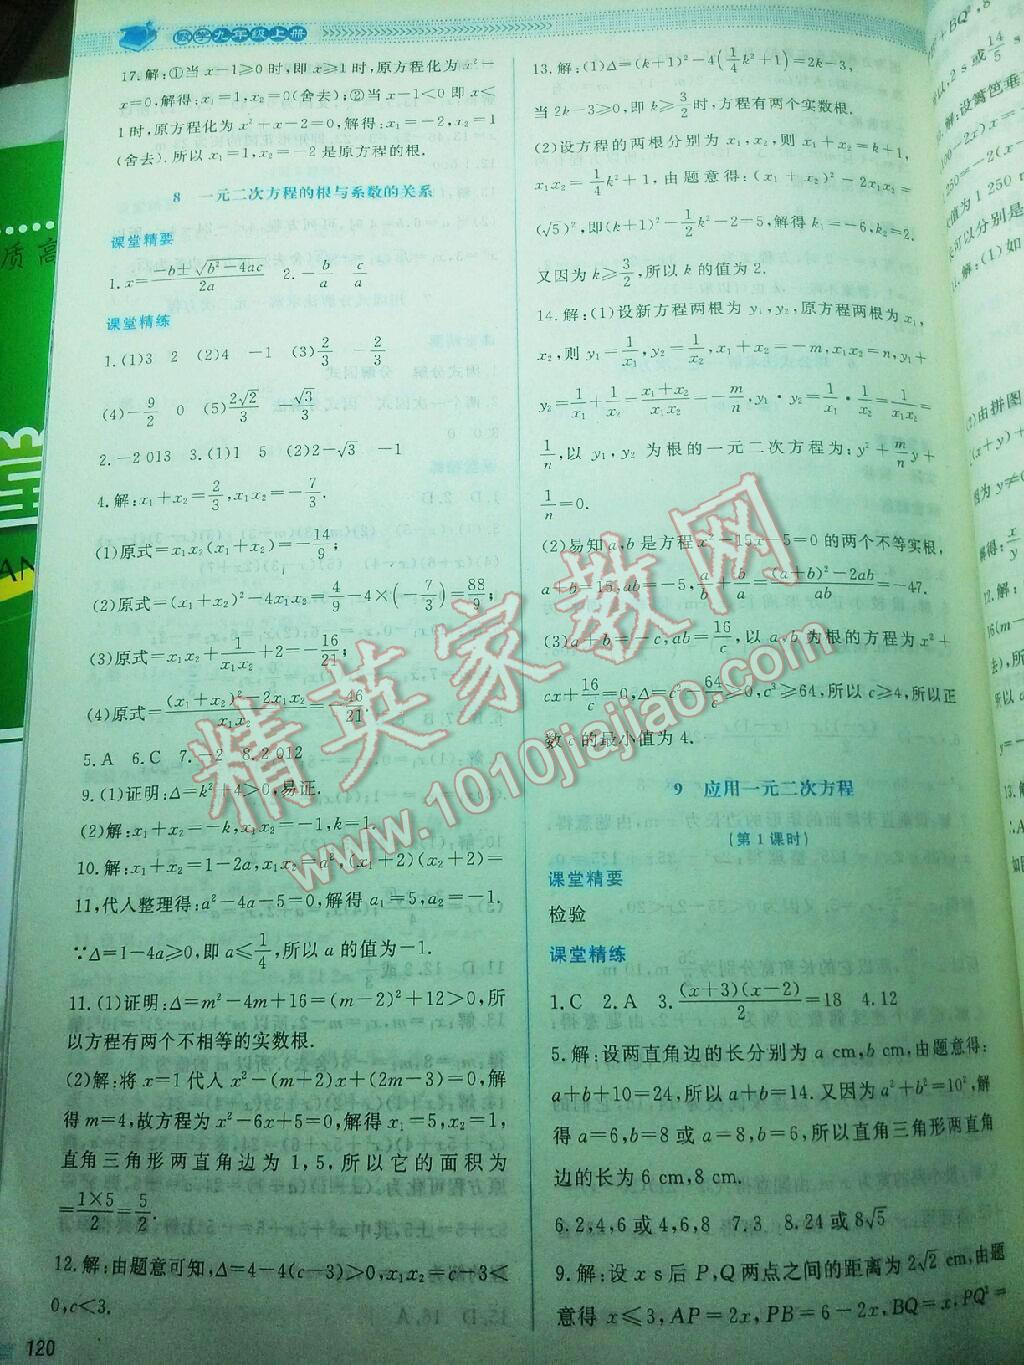 数学九年级上册
17.解:①当 x-1≥0 时,即 x≥1 时,原方程化为 x²-
x=0,解得:x₁=1,x₂=0(舍去);②当 x-1<0 即 x<
1 时,原方程化为 x²+x-2=0,解得:x₁=-2,x₂=1
(舍去).所以 x₁=1,x₂=-2 是原方程的根.
8 一元二次方程的根与系数的关系
课堂精要
1.x=(-b±√(b²-4ac))/2a 2.-b/a c/a
课堂精练
1.(1)3 2 (2)4 -1 (3)2/3 -2/3
(4)-9/2 0 (5)2√2/3 -√3/3
2.-2 013 3.(1)1 5 (2)2-√3 -1
4.解:x₁+x₂=2/3,x₁x₂=-7/3.
(1)原式=x₁x₂(x₁+x₂)=-14/9;
(2)原式=(x₁+x₂)²-4x₁x₂=4/9-4×(-7/3)=88/9;
(3)原式=x₁x₂+1/(x₁x₂)+2=-16/21;
(4)原式=((x₁+x₂)²-2x₁x₂)/(x₁x₂)=-46/21.
5.A 6.C 7.-2 8.2 012
9.(1)证明:Δ=k²+4>0,易证.
(2)解:x₁+x₂=-k,x₁x₂=-1,k=1.
10.解:x₁+x₂=1-2a,x₁x₂=a²,(x₁+2)(x₂+2)=
11,代人整理得:a²-4a-5=0,解得 a₁=5,a₂=-1.
∵Δ=1-4a≥0,即 a≤1/4,所以 a 的值为-1.
11.(1)证明:Δ=m²-4m+16=(m-2)²+12>0,所
以方程有两个不相等的实数根.
(2)解:将 x=1 代人 x²-(m+2)x+(2m-3)=0,解
得 m=4,故方程为 x²-6x+5=0,解得 x₁=5,x₂=1,
直角三角形两直角边为 1,5.所以它的面积为
=(1×5)/2=5/2.
12.解:由题意可知,Δ=4-4(c-3)>0,x₁x₂=c-3<
0,c<3.
120
13.解:(1)Δ=(k+1)²-4(1/4k²+1)=2k-3,
当 2k-3≥0,即 k≥3/2 时,方程有两个实数根.
(2)设方程的两根分别为 x₁,x₂,则 x₁+x₂=k+1,
x₁x₂=1/4k²+1,由题意得:(x₁+x₂)²-2x₁x₂=
(√5)²,即(k+1)²-1/2k²-2=5,解得 k₁=-6,k₂=2.
又因为 k≥3/2,所以 k 的值为 2.
14.解:(1)设新方程两根为 y₁,y₂,原方程两根为 x₁,
x₂,则 y₁=1/x₁,y₂=1/x₂,x₁+x₂=-m,x₁x₂=n,y₁+
y₂=1/x₁+1/x₂=(x₁+x₂)/(x₁x₂)=-m/n,y₁·y₂=1/x₁·1/x₂=1/(x₁x₂)=
1/n,以 y₁,y₂ 为根的一元二次方程为:y²+m/n y+
1/n=0.
(2)易知 a,b 是方程 x²-15x-5=0 的两个不等实根,
a+b=15,ab=-5,a/b+b/a=((a+b)²-2ab)/ab=-47.
(3)a+b=-c,ab=16/c,以 a,b 为根的方程为 x²+
cx+16/c=0,Δ=c²-64/c≥0,c³≥64,所以 c≥4,所以正
数 c 的最小值为 4.
9 应用一元二次方程
(第 1 课时)
课堂精要
检验
课堂精练
1.C 2.A 3.(x+3)(x-2)/2=18 4.12
5.解:设两直角边的长分别为 a cm,b cm,由题意得:
a+b+10=24,所以 a+b=14.又因为 a²+b²=10²,解
得 a=6,b=8 或 a=8,b=6,所以直角三角形两直角
边的长为 6 cm,8 cm.
6.2,4,6 或 4,6,8 7.3 8.24 或 8√5
9.解:设 x s 后 P,Q 两点之间的距离为 2√2 cm,由题
意得 x≤3,AP=2x,PB=6-2x,BQ=x,PQ²=
精英家教网
www.1010jiajiao.com